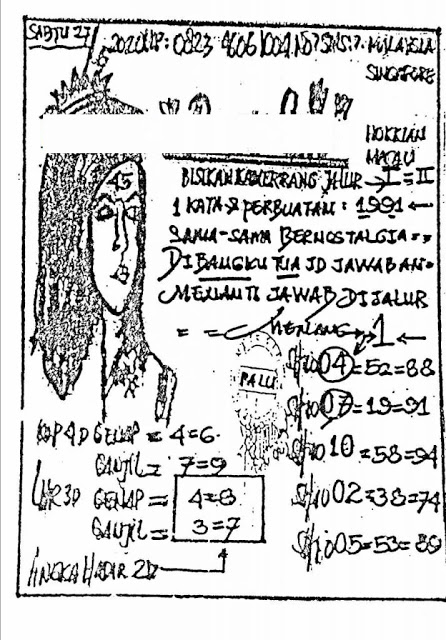 SABTU 27
2020
0823
MALAYSIA
SINGAPORE
HOKKIAN
MACAU
45
BISIKAN JALUR → I = II
1 KATA PERBUATAN : 1991 ←
SAMA-SAMA BERNOSTALGIA
DIBANGKU TUA JD JAWABAN
MENANTI JAWAB DIJALUR
= = MENANG → 1 ←
PALU
Shio 04 = 52 = 88
Shio 07 = 19 = 91
Shio 10 = 58 = 94
Shio 02 = 38 = 74
Shio 05 = 53 = 89
KOP 4D GENAP = 4=6
GANJIL = 7=9
3D GENAP = 4=8
GANJIL = 3=7
ANGKA HADIR 2D